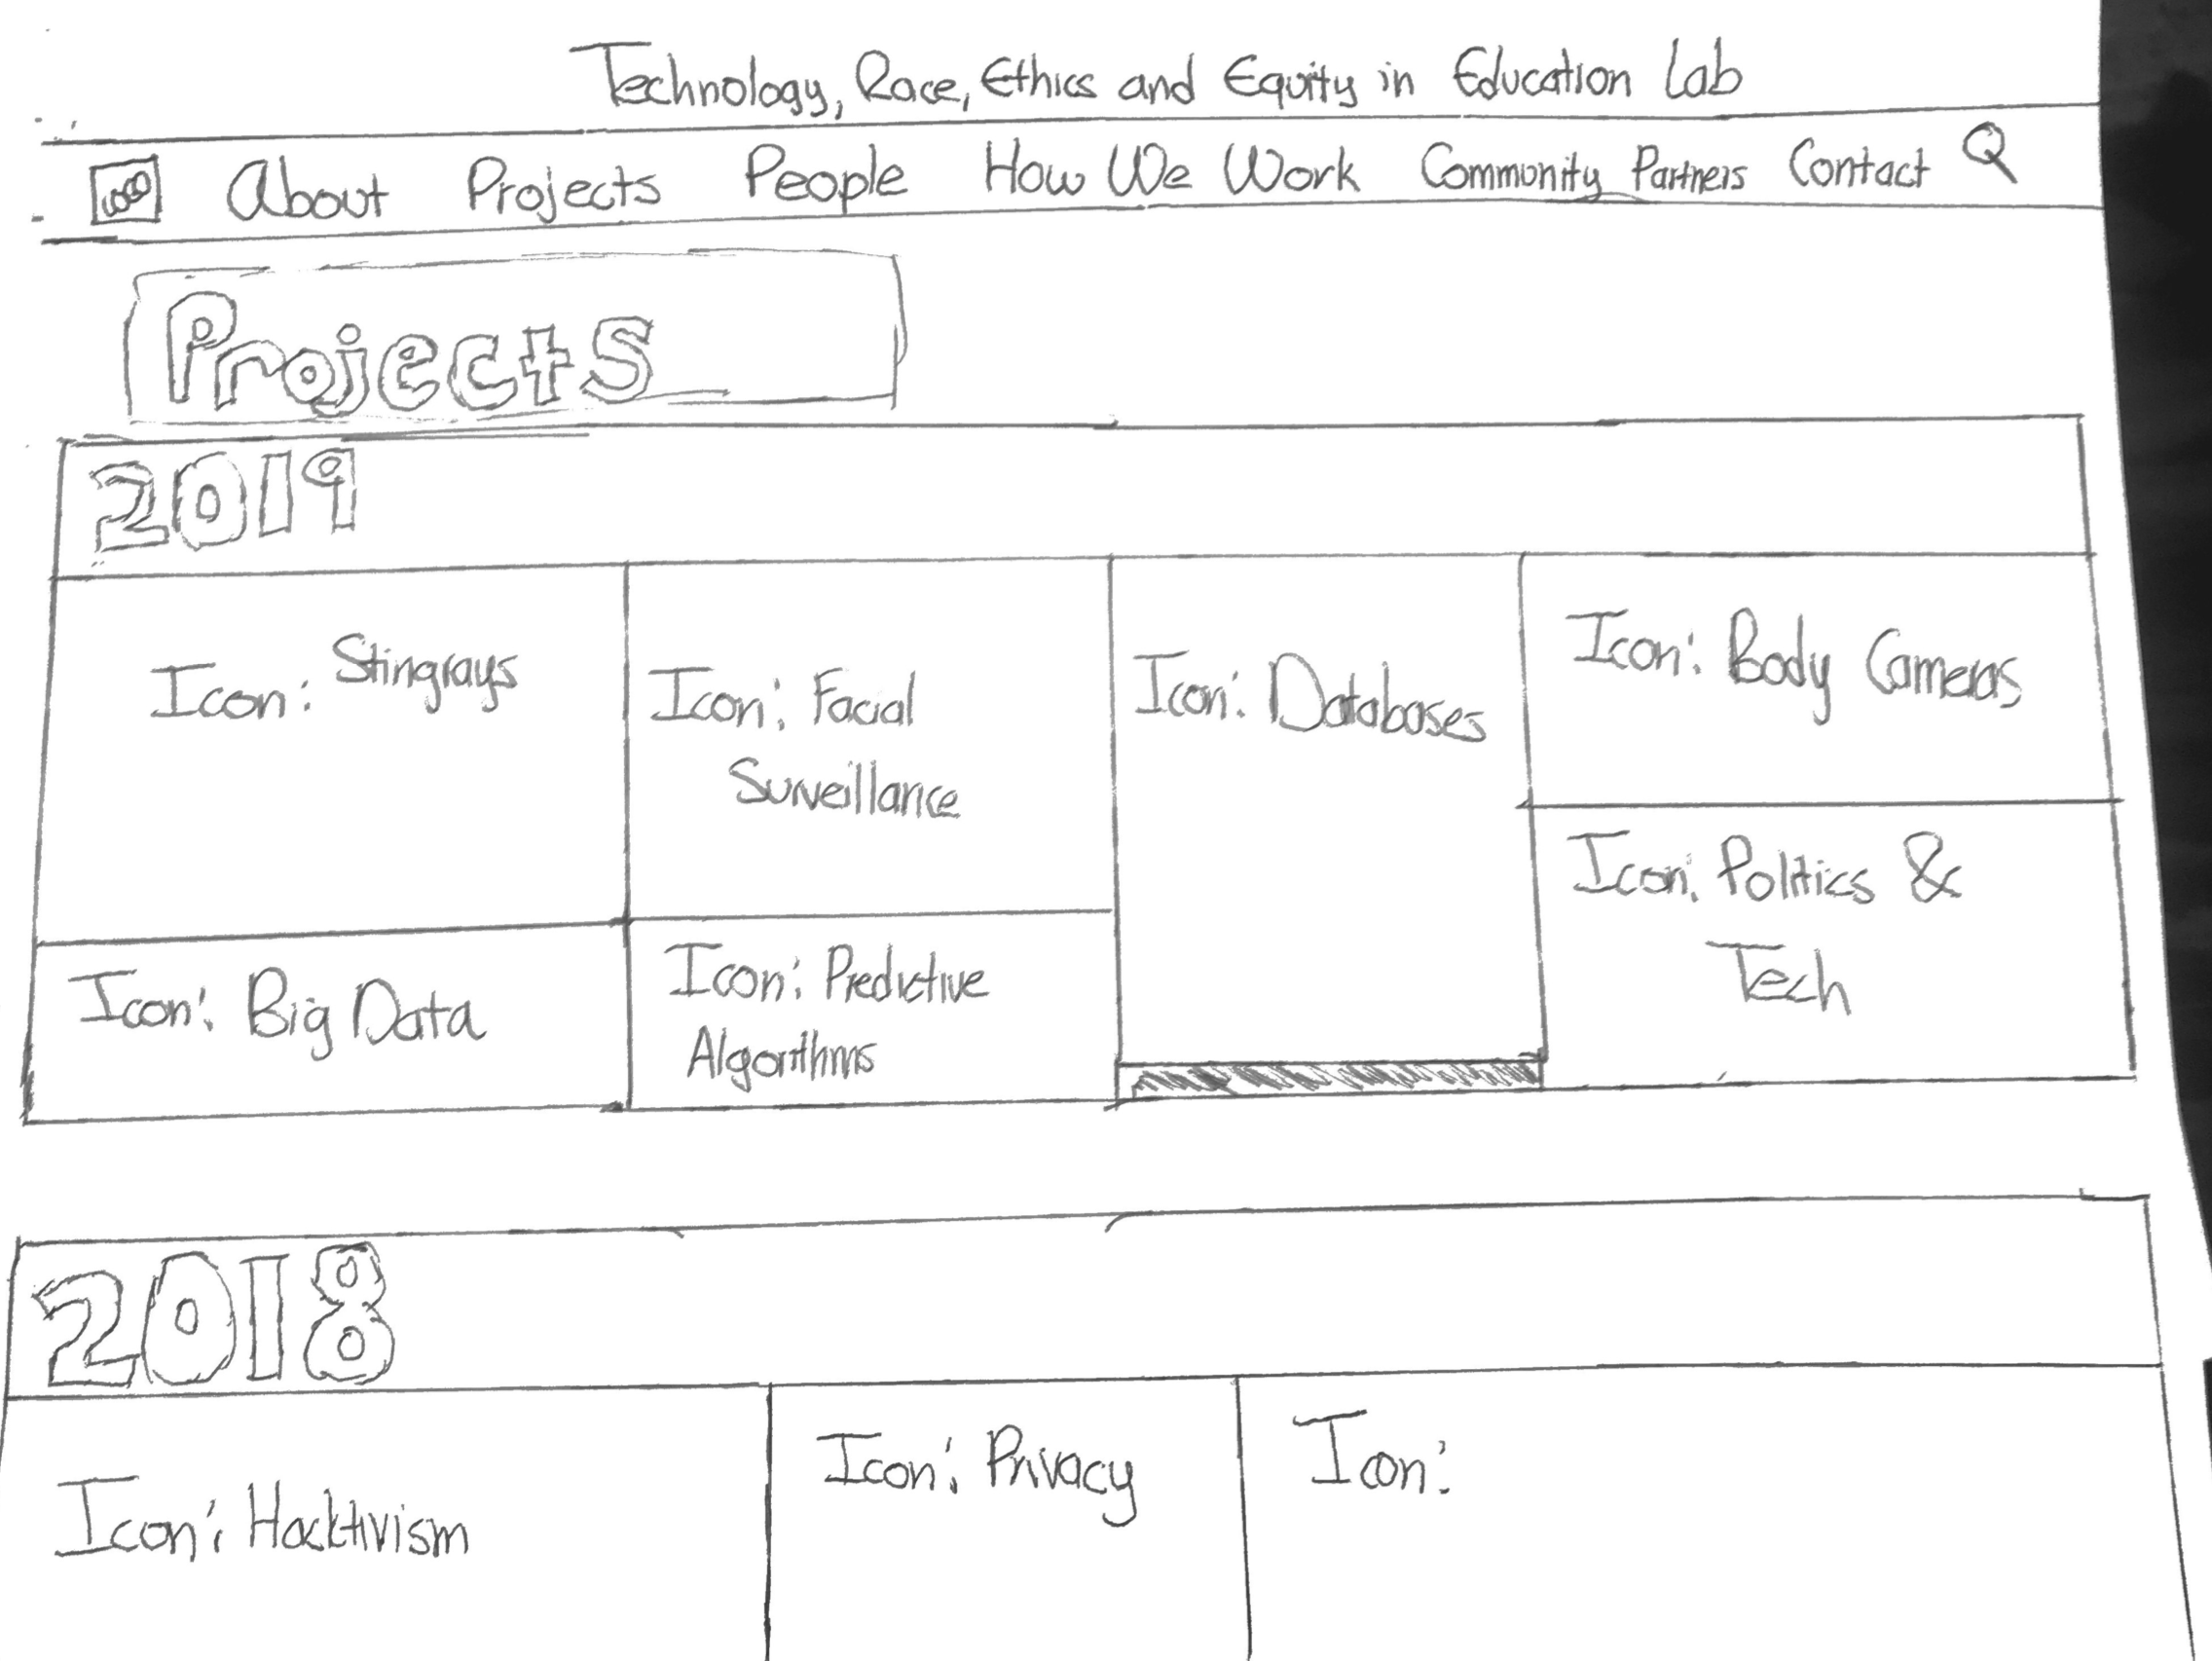 Technology, Race, Ethics and Equity in Education Lab
About Projects People How We Work Community Partners Contact
Projects
2019
Icon: Stingrays
Icon: Facial
Surveillance
Icon: Databases
Icon: Body Cameras
Icon: Big Data
Icon: Predictive
Algorithms
Icon: Politics &
Tech
2018
Icon: Hacktivism
Icon: Privacy
Icon: